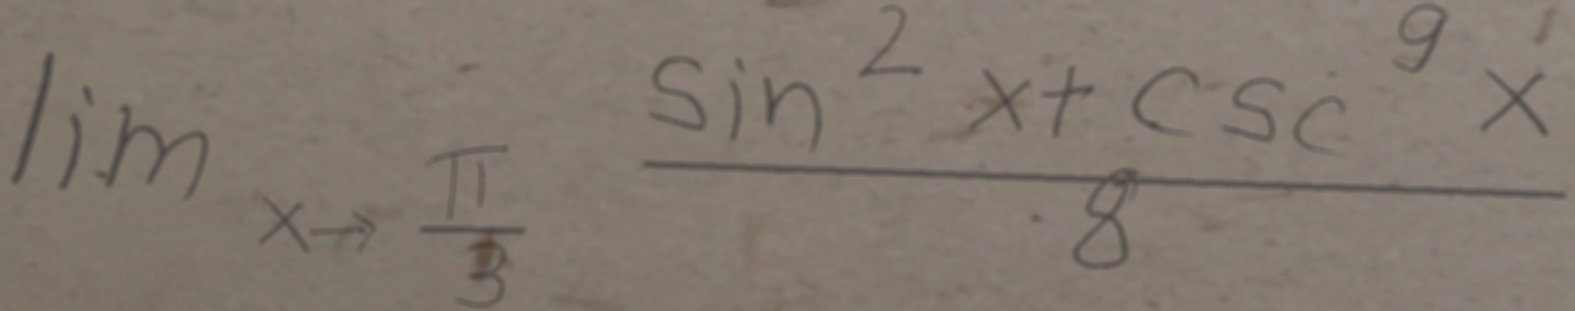 lim x→π/3 (sin² x + csc⁹ x)/8